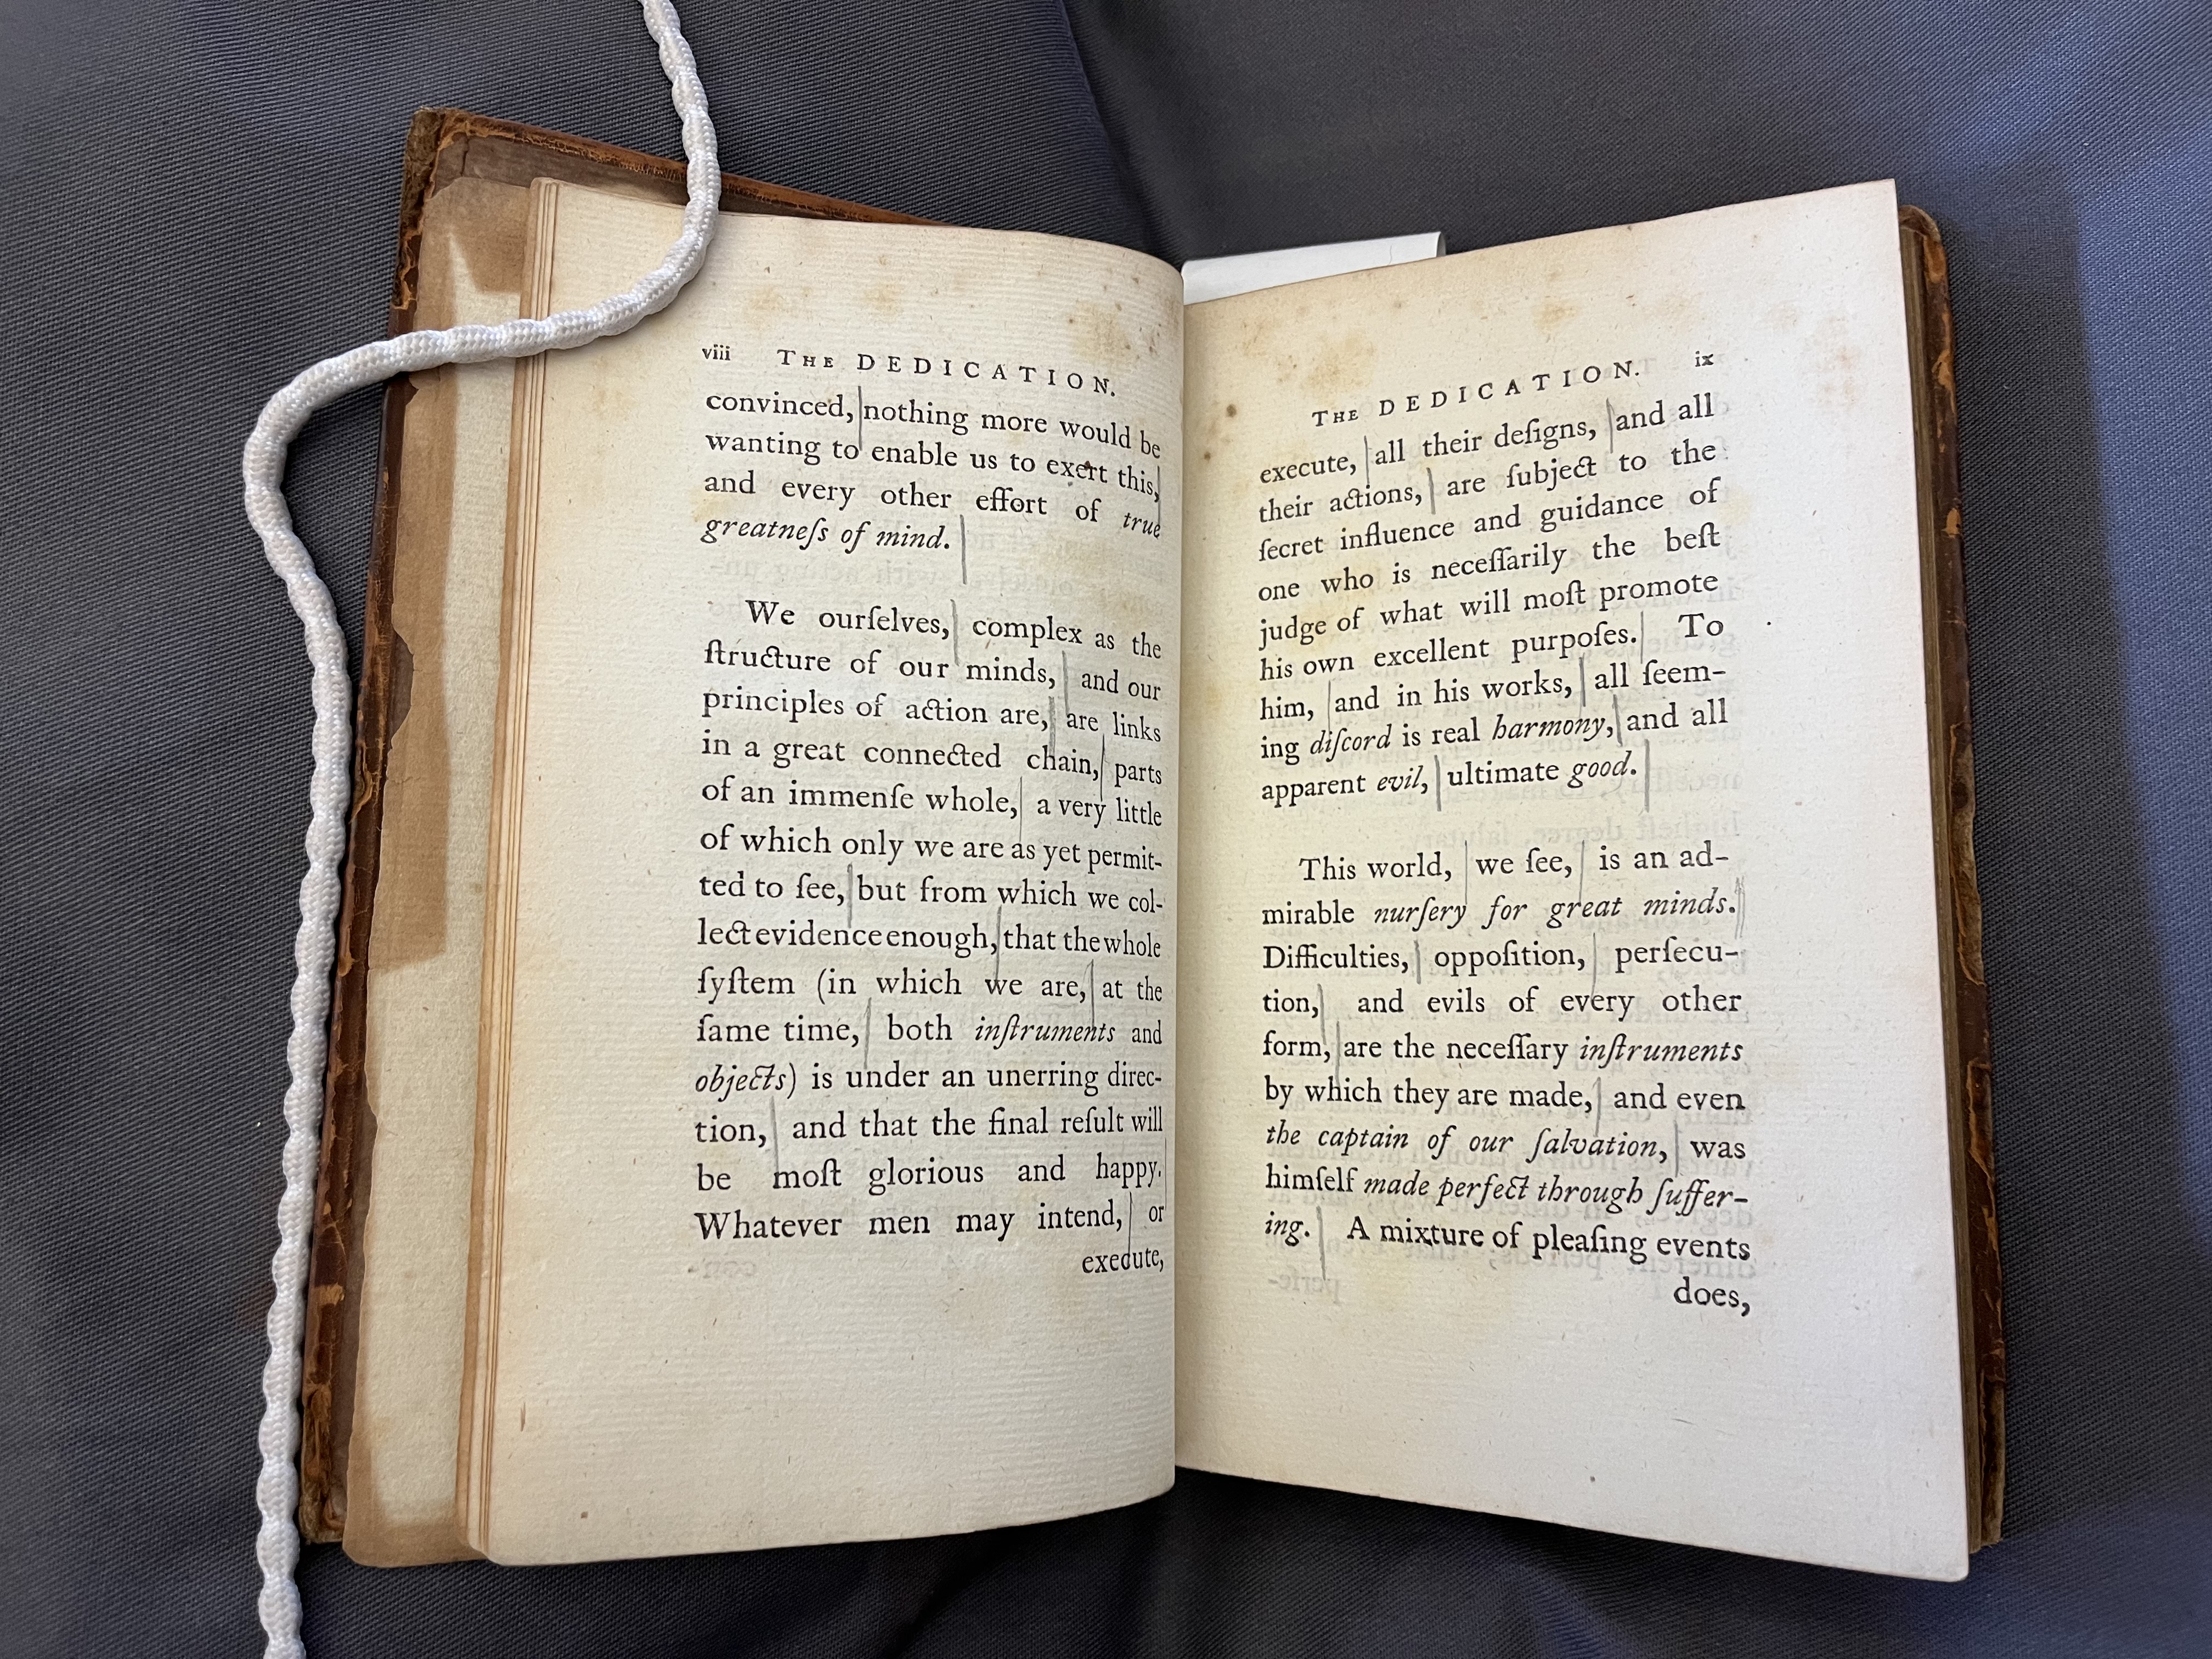 viii THE DEDICATION.
convinced, nothing more would be
wanting to enable us to exert this,
and every other effort of true
greatneſs of mind.
We ourſelves, complex as the
ſtructure of our minds, and our
principles of action are, are links
in a great connected chain, parts
of an immenſe whole, a very little
of which only we are as yet permit-
ted to ſee, but from which we col-
lect evidence enough, that the whole
ſyſtem (in which we are, at the
ſame time, both inſtruments and
objects) is under an unerring direc-
tion, and that the final reſult will
be moſt glorious and happy.
Whatever men may intend, or
execute,
THE DEDICATION. ix
execute, all their deſigns, and all
their actions, are ſubject to the
ſecret influence and guidance of
one who is neceſſarily the beſt
judge of what will moſt promote
his own excellent purpoſes. To
him, and in his works, all ſeem-
ing diſcord is real harmony, and all
apparent evil, ultimate good.
This world, we ſee, is an ad-
mirable nurſery for great minds.
Difficulties, oppoſition, perſecu-
tion, and evils of every other
form, are the neceſſary inſtruments
by which they are made, and even
the captain of our ſalvation, was
himſelf made perfect through ſuffer-
ing. A mixture of pleaſing events
does,